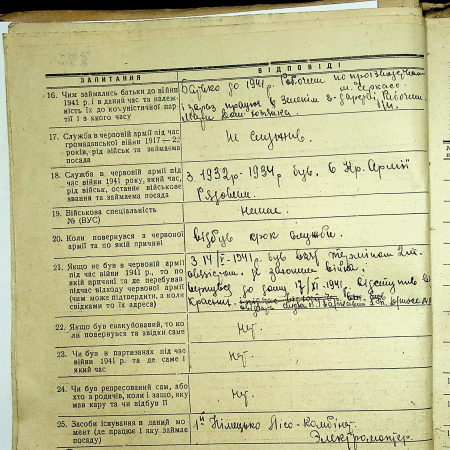 ЗАПИТАННЯ
ВІДПОВІДІ
16. Чим займались батьки до війни
1941 р. і в даний час та належ-
ність їх до комуністичної пар-
тії і з якого часу
Батько до 1941 р. Робочим по
м. Черкаси
і зараз працює в
Робочим.
Мати Дом. хозяйка.
17. Служба в червоній армії під час
громадянської війни 1917—22
років, рід військ та займаєма
посада
Не служив.
18. Служба в червоній армії під
час війни 1941 року, який час,
рід військ, останне військове
звання та займаєма посада
З 1932 р - 1934 р був. в Кр. Армії
Рядовим.
19. Військова спеціальність
№ (ВУС)
Немає.
20. Коли повернувся з червоної
армії та по якій причині
Відбув срок служби.
21. Якщо не був в червоній армії
під час війни 1941 р., то по
якій причині та де перебував
підчас відходу червоної армії
(чим може підтвердити, а коли
свідками то їх адреса)
З 14/V-1941 р. був терміном 2 м.
війна.
до дому 17/XI 1941 р.
22. Якщо був евакуйований, то ко-
ли повернувся та звідки саме
Ні.
23. Чи був в партизанах під час
війни 1941 р. та де саме і
який час
Ні.
24. Чи був репресований сам, або
хто з родичів, коли і защо, яку
мав кару та чи відбув її
Ні.
25. Засоби існування в даний мо-
мент (де працює і яку займає
посаду)
1й Німецько Лісо-Комбінат
Электромонтер.